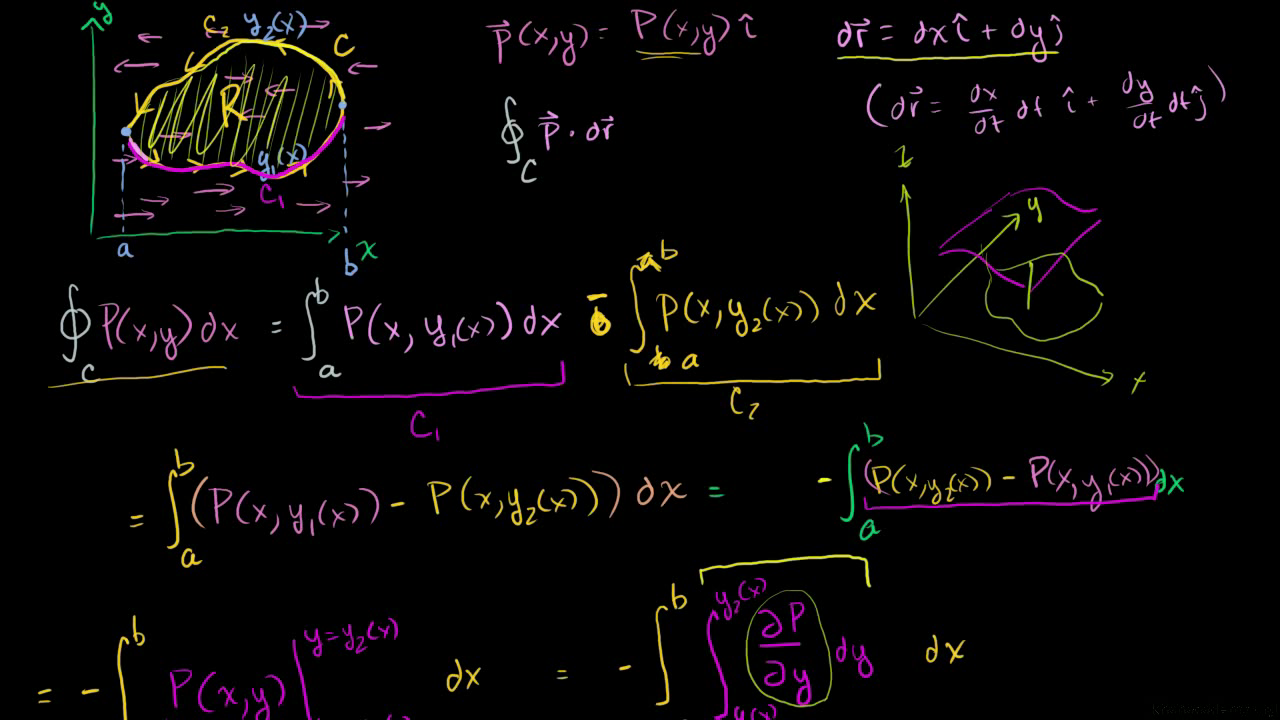 y
C₂ y₂(x) C
R
y₁(x)
C₁
a b x
P⃗(x,y) = P(x,y) î
dr⃗ = dx î + dy ĵ
(dr⃗ = dx/dt dt î + dy/dt dt ĵ)
∮_C P⃗ · dr⃗
z
y
x
∮_C P(x,y) dx = ∫_a^b P(x, y₁(x)) dx - ∫_a^b P(x, y₂(x)) dx
C₁ C₂
= ∫_a^b (P(x, y₁(x)) - P(x, y₂(x))) dx = - ∫_a^b (P(x, y₂(x)) - P(x, y₁(x))) dx
= - ∫^b P(x,y) |^{y=y₂(x)} dx = - ∫^b ∫_{y₁(x)}^{y₂(x)} ∂P/∂y dy dx